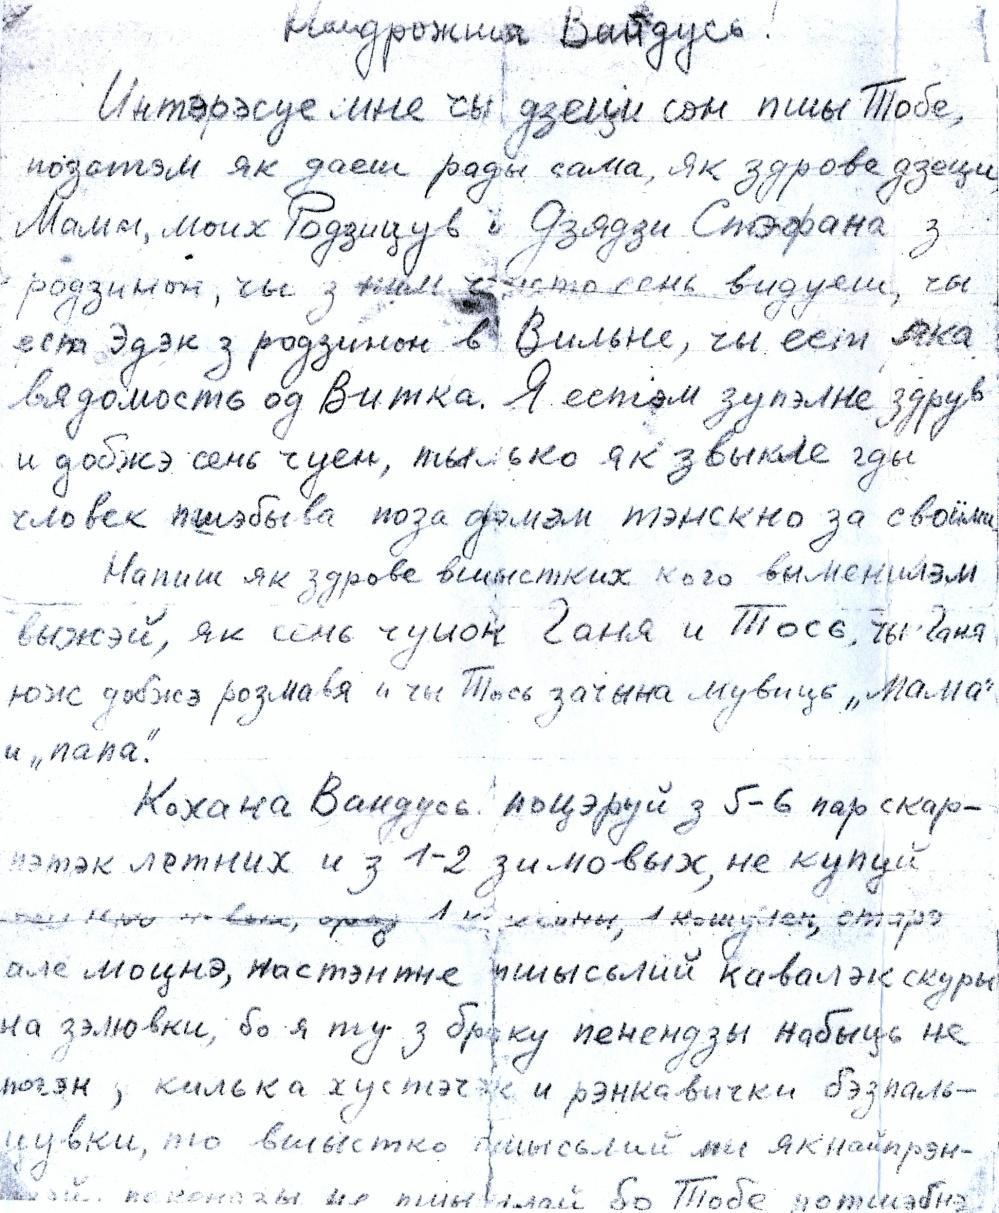 Найдрожша Вандусь!
Интэрэсуе мне чы дзеци сон пшы Тобе,
позатэм як даеш рады сама, як здрове дзеци,
Мамы, моих Родзицув и Дзядзи Стэфана з
родзинон, чы з ним часто сень видуеш, чы
ест Эдэк з родзинон в Вильне, чы ест яка
вядомость од Витка. Я естэм зупэлне здрув
и добжэ сень чуен, тылько як звыкле гды
человек пшэбыва поза домэм тэнскно за своїми
Напиш як здрове вшыстких кого выменилэм
выжэй, як сень чуион Ганя и Тось, чы Ганя
юж добжэ розмавя и чы Тось зачына мувиць „Мама"
и „папа".
Кохана Вандусь поцэруй з 5-6 пар скар-
пэтэк летних и з 1-2 зимовых, не купуй
1 1 кошулен, старэ
але моцнэ, настэнтне пшысьлий кавалэк скуры
на зэлювки, бо я ту з браку пенендзы набыць не
могэн, килька хустэчэк и рэнкавички бэзпаль-
цувки, то вшыстко пшысьлий ми якнайпрэн-
не бо Тобе потшэбнэ